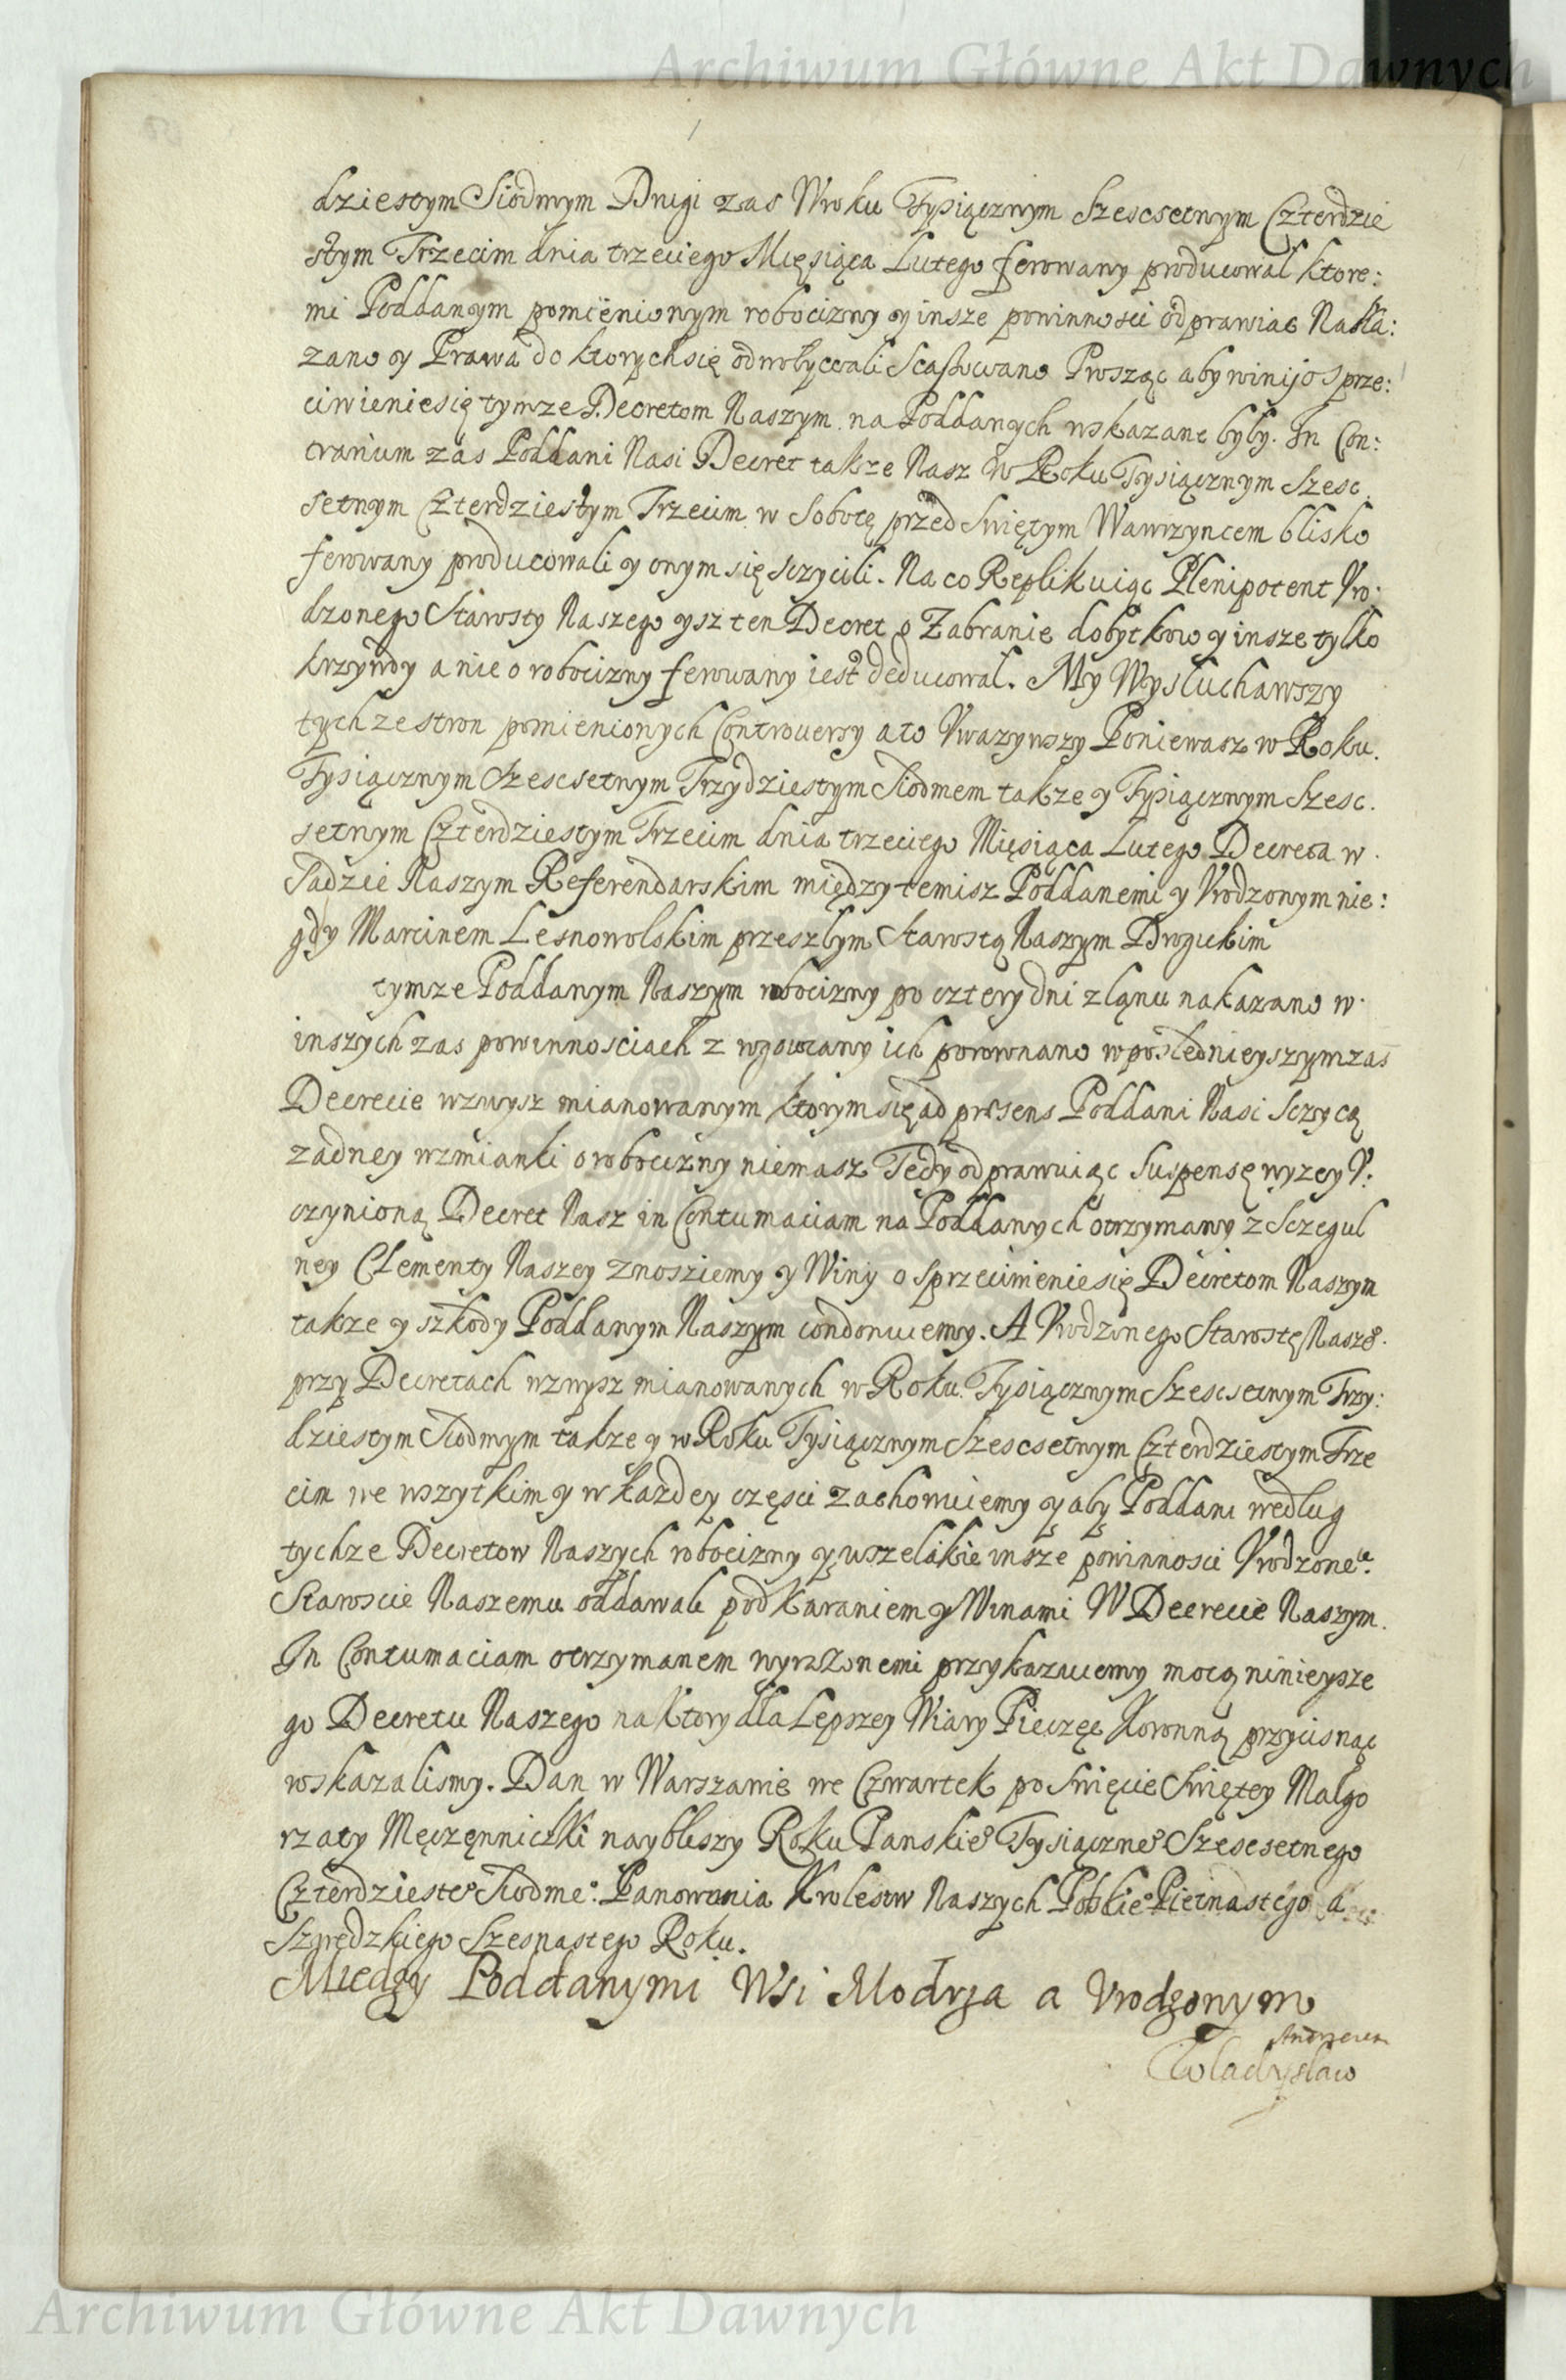 Archiwum Główne Akt Dawnych
dziestym Siodmym Drugi zas W roku Tysiącznym Szescsetnym Czterdzie
stym Trzecim dnia trzeciego Mięsiąca Lutego ferowany producował ktore:
mi Poddanym pomienionym robocizny y insze powinnosci odprawiac Naka:
zano y Prawa do ktorych się odwoływali Scassowano Prosząc aby winy o sprze:
ciwienie się tymze Decretom Naszym na Poddanych wskazane były. In Con:
trarium zas Poddani Nasi Decret takze Nasz w Roku Tysiącznym Szesc
setnym Czterdziestym Trzecim w Sobotę przed Swiętym Wawrzyncem blisko
ferowany producowali y onym się Sczycili. Na co Replikuiąc Plenipotent Vro:
dzonego Starosty Naszego ysz ten Decret o Zabranie dobytkow y insze tylko
krzywdy a nie o robocizny ferowany iest deducował. My Wysłuchawszy
tychze stron pomienionych Controversy a to Vwazywszy Poniewasz w Roku
Tysiącznym Szescsetnym Trzydziestym Siodmem takze y Tysiącznym Szesc
setnym Czterdziestym Trzecim dnia trzeciego Mięsiąca Lutego Decreta w
Sadzie Naszym Referendarskim między temisz Poddanemi y Vrodzonym nie:
gdy Marcinem Lesnowolskim przeszłym Starostą Naszym Drogickim
tymze Poddanym Naszym robocizny po cztery dni z łąnu nakazano w
inszych zas powinnosciach z ich porownano w poslednieyszym zas
Decrecie wzwysz mianowanym ktorym się ad præsens Poddani Nasi Sczycą
zadney wzmianki o robocizny niemasz Tedy odprawuiąc Suspensę wyzey V:
czynioną Decret Nasz in Contumaciam na Poddanych otrzymany z Sczegul
ney Clementy Naszey znosziemy y Winy o Sprzeciwienie się Decretom Naszym
takze y szkody Poddanym Naszym condonuiemy. A Vrodzonego Starostę Nasze°
przy Decretach wzwysz mianowanych w Roku Tysiącznym Szescsetnym Trzy:
dziestym Siodmym takze y w Roku Tysiącznym Szescsetnym Czterdziestym Trze
cim we wszytkim y w kazdey częsci zachowuiemy y aby Poddani według
tychze Decretow Naszych robocizny y wszelakie insze powinnosci Vrodzone:
Staroscie Naszemu oddawali pod Karaniem y Winami W Decrecie Naszym
In Contumaciam otrzymanem wyrazonemi przykazuiemy mocą ninieysze
go Decretu Naszego na ktory dla Lepszey Wiary Pieczęc Koronną przycisnąc
wskazalismy. Dan w Warszawie we Czwartek po Swięcie Swiętey Małgo
rzaty Męczęnniczki naybliszy Roku Panskie° Tysiączne° Szescsetnego
Czterdzieste° Siodme°. Panowania Krolestw Naszych Polskie° Pietnastego a
Szwedzkiego Szesnastego Roku.
Między Poddanymi Wsi Modrza a Vrodzonym
Andrzeiem
Władysław
Archiwum Główne Akt Dawnych